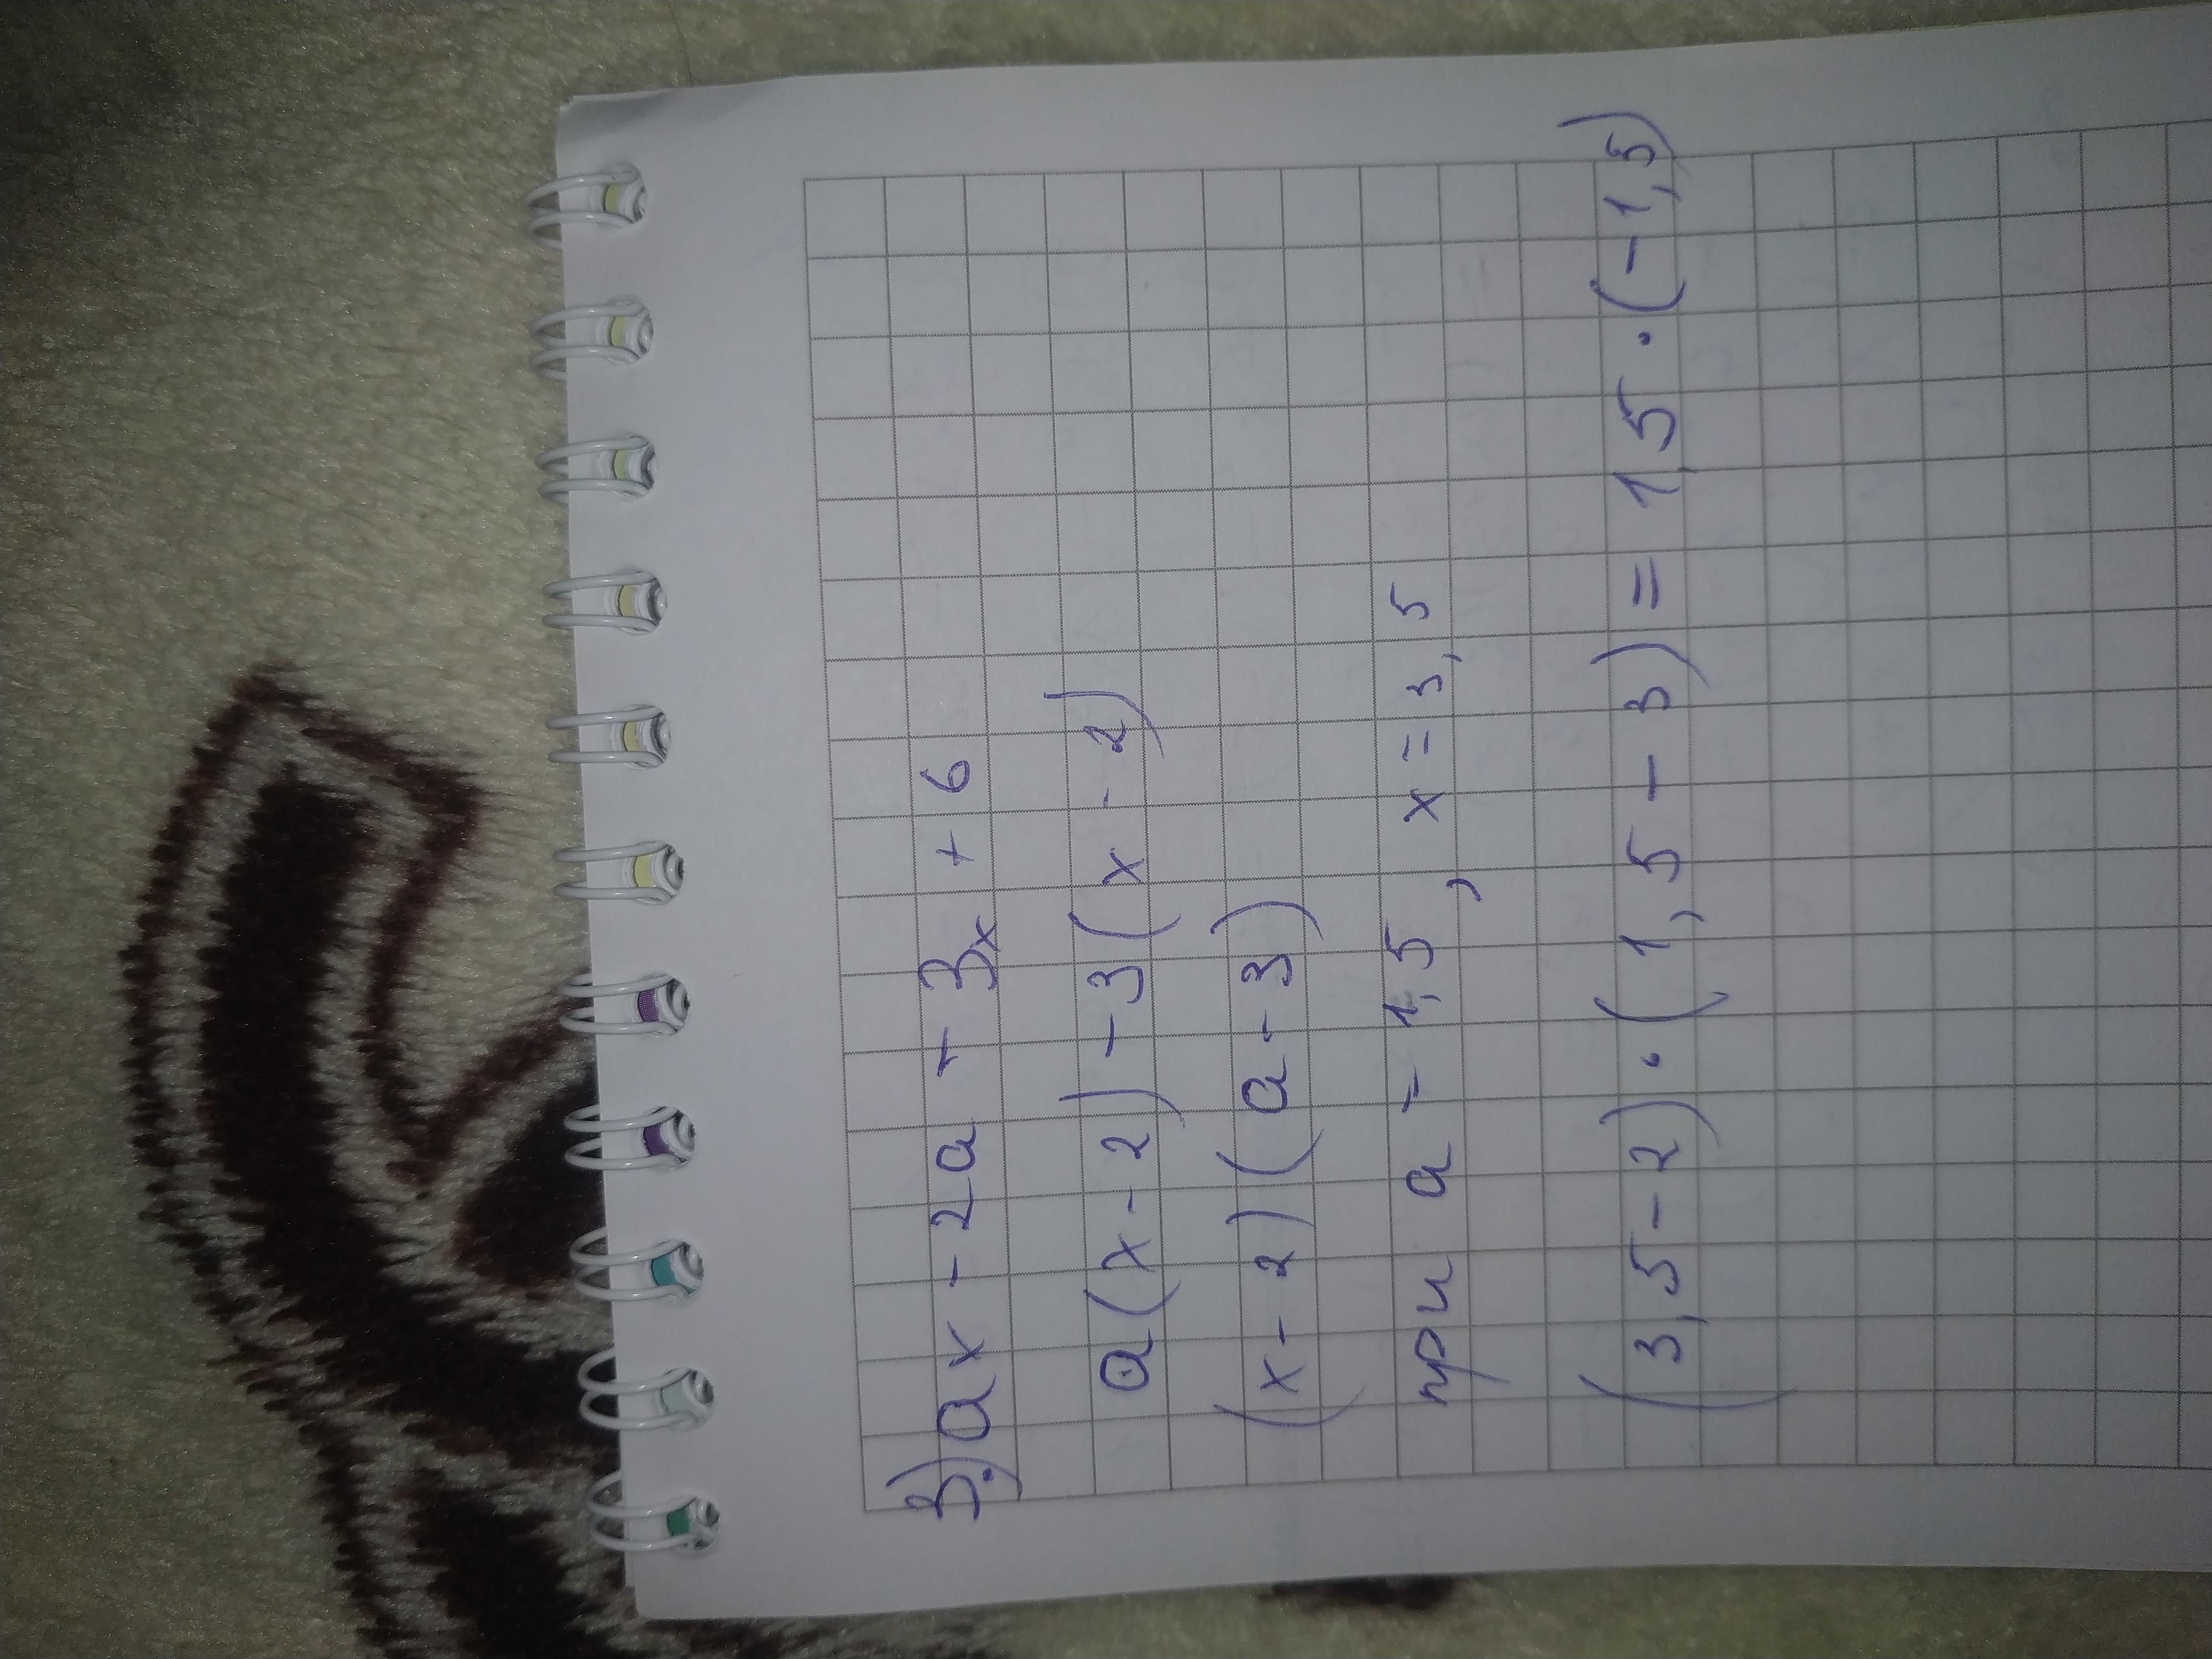 3) ax - 2a - 3x + 6
a(x - 2) - 3(x - 2)
(x - 2)(a - 3)
при a - 1,5, x = 3,5
(3,5 - 2) · (1,5 - 3) = 1,5 · (-1,5)